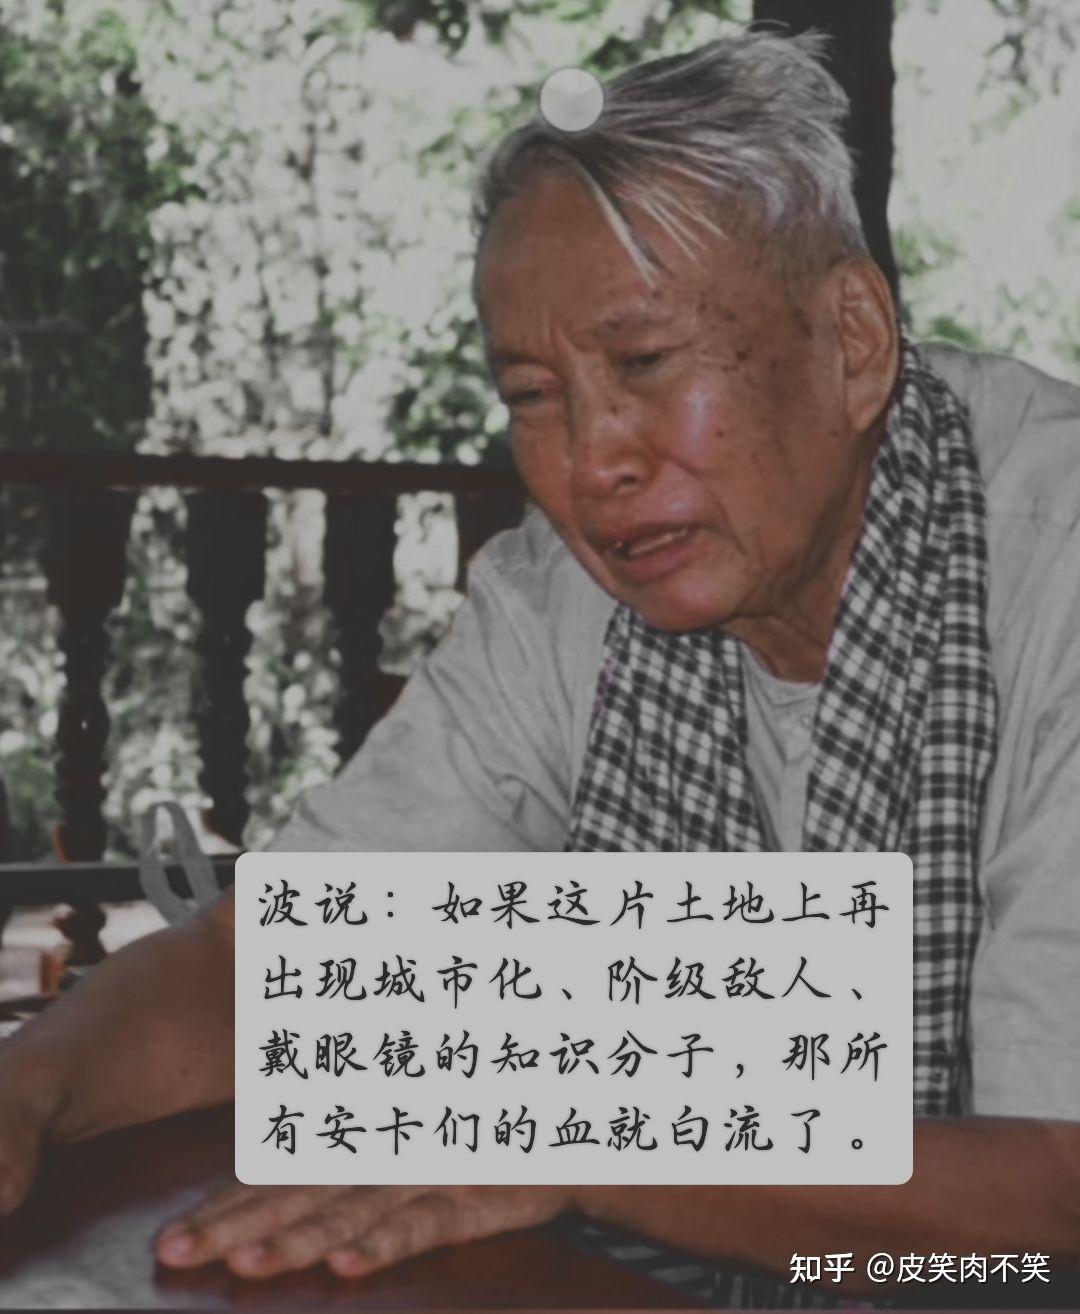 波说：如果这片土地上再
出现城市化、阶级敌人、
戴眼镜的知识分子，那所
有安卡们的血就白流了。
知乎 @皮笑肉不笑